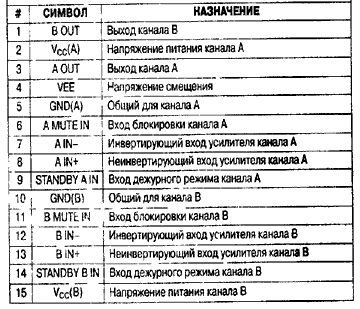 # СИМВОЛ НАЗНАЧЕНИЕ
1 B OUT Выход канала B
2 VCC(A) Напряжение питания канала A
3 A OUT Выход канала A
4 VEE Напряжение смещения
5 GND(A) Общий для канала A
6 A MUTE IN Вход блокировки канала A
7 A IN– Инвертирующий вход усилителя канала A
8 A IN+ Неинвертирующий вход усилителя канала A
9 STANDBY A IN Вход дежурного режима канала A
10 GND(B) Общий для канала B
11 B MUTE IN Вход блокировки канала B
12 B IN– Инвертирующий вход усилителя канала B
13 B IN+ Неинвертирующий вход усилителя канала B
14 STANDBY B IN Вход дежурного режима канала B
15 VCC(B) Напряжение питания канала B